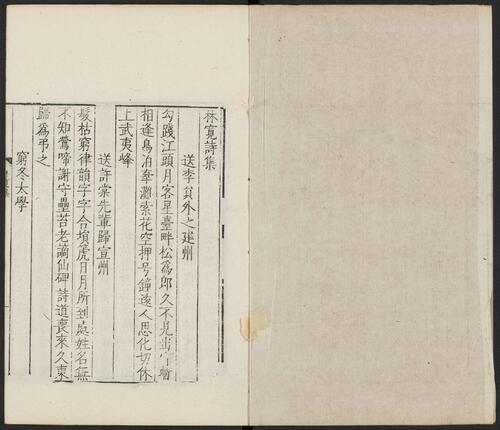 林寬詩集
送李員外之建州
勾踐江頭月客星臺畔松爲郎久不見出守暫
相逢鳥泊牽灘索花空押号鐘遠人思化切休
上武夷峰
送許棠先輩歸宣州
髮枯窮律韻字字合塤虎日月所到處姓名無
不知鶯啼謝守壘苔老謫仙碑詩道喪來久東
歸爲弔之
窮冬太學